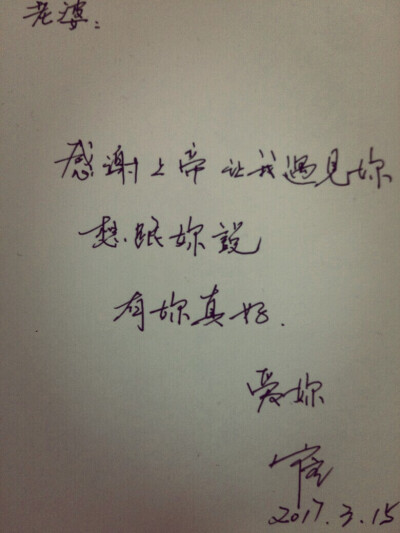 老婆：
感谢上帝让我遇见妳
想跟妳说
有妳真好.
爱妳
2017.3.15